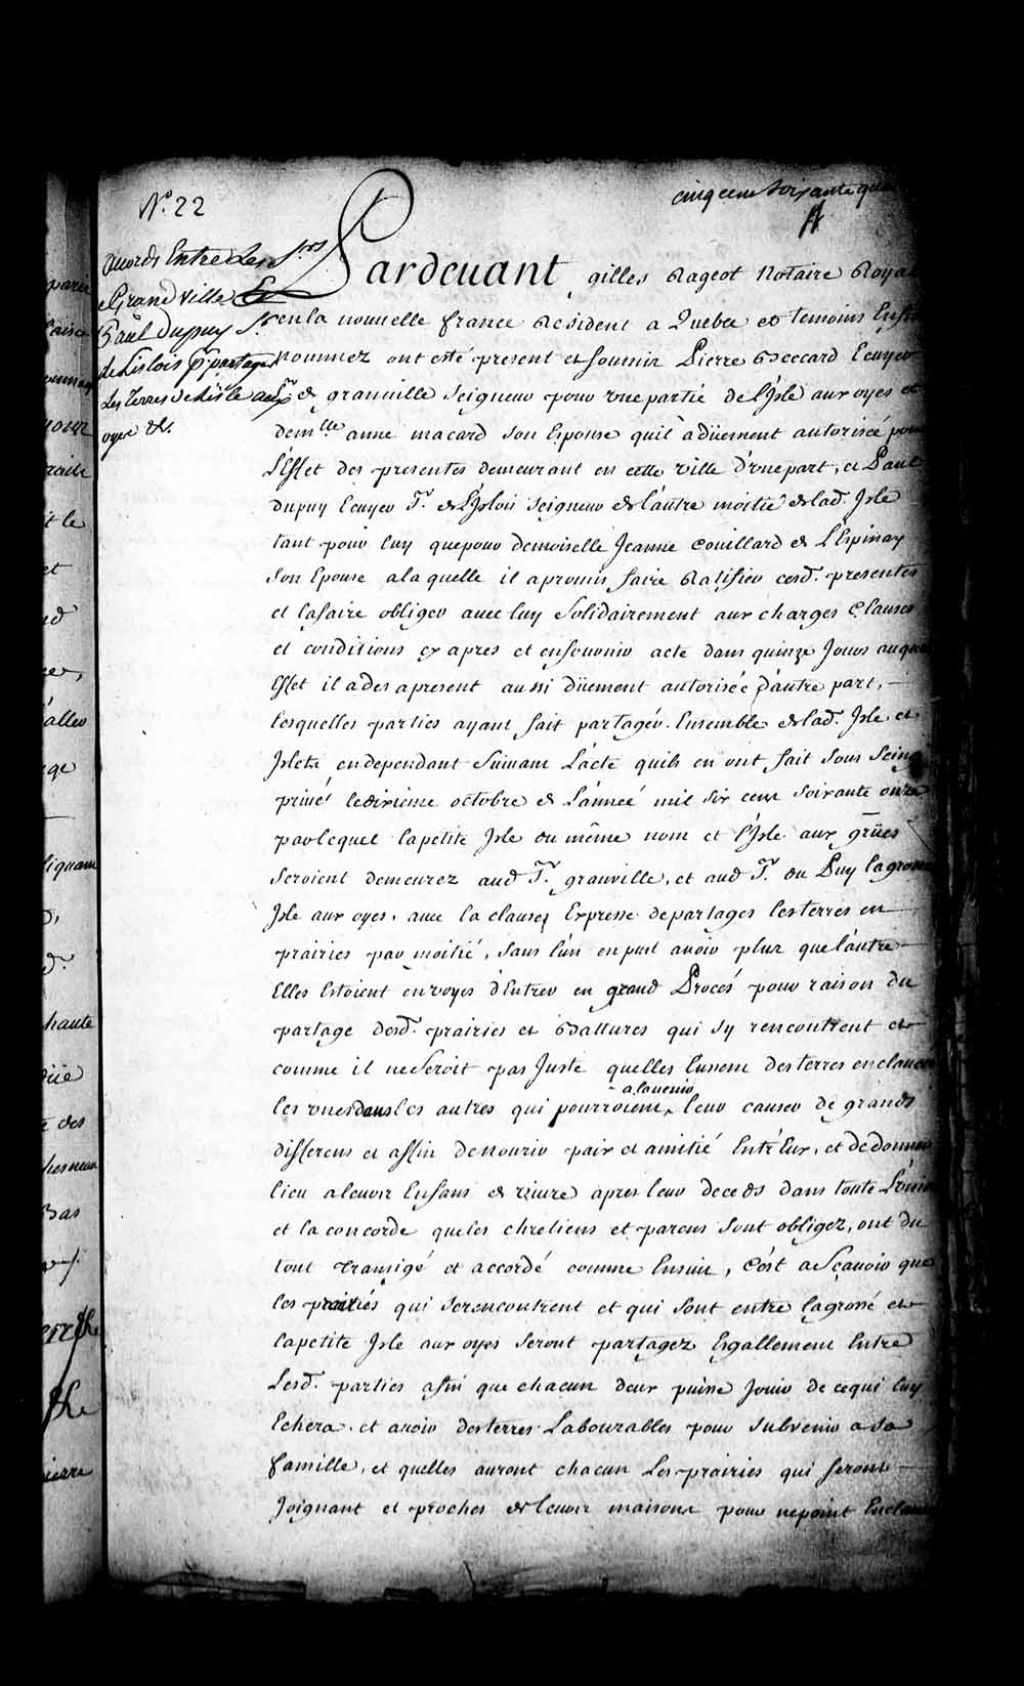 N.º 22
cinq cens soixante
acords Entre Les S.rs
Grandville &
Paul Dupuy S.r
de Lislois pr partager
Les Terres de Lisle aux
oyes &c.
Pardeuant gilles Rageot Notaire Royal
en la nouuelle france Resident a Quebec et temoins
nommez ont esté present et soumin Pierre Beccard Ecuyer
S.r de granuille Seigneur pour vne partié de l'Isle aux oyes et
dem.lle anne macard son Epouse quil a düement autorisée pour
L'Effet des presentes demeurant en cette ville d'vne part, et Paul
dupuy Ecuyer S.r de L'Islois Seigneur de l'autre moitié de lad. Isle
tant pour luy que pour demoiselle Jeanne Couillard de L'Espinay
son Epouse a la quelle il a promis faire Ratifier cesd. presentes
et la faire obliger auec luy Solidairement aux charges Clauses
et conditions cy apres et en fournir acte dans quinze Jours au quel
Effet il a des apresent aussi düement autorisée d'autre part,
lesquelles parties ayant fait partagér Ensemble de lad. Isle et
Islets en dependant Suiuant L'acte quils en ont fait sous Seing
priué le dixieme octobre de L'année mil six cens soixante onze
par lequel la petite Isle du même nom et l'Isle aux grües
seroient demeurez aud S.r granville, et aud S.r du Puy la grosse
Isle aux oyes, auec la clause Expresse de partager les terres en
prairies par moitié, sans l'un en pust auoir plus que l'autre
Elles Estoient en voyes d'Entrer en grand Procés pour raison du
partage desd. prairies et Battures qui s'y rencontrent et
comme il ne Seroit pas Juste quelles Eussent des terres enclauées
les vnes dans les autres qui pourroient a lauenir leur causer de grands
differens et affin de nourir paix et amitié Entr'Eux, et de donner
lieu a leurs Enfans de viure apres leur deceds dans toute L'vnion
et la concorde que les chretiens et parens sont obligez, ont du
tout transigé et accordé comme Ensuit, C'est a Sçauoir que
les prairiés qui se rencontrent et qui sont entre la grosse et
la petite Isle aux oyes seront partagez Egallement Entre
Lesd. parties afin que chacun deux puisse Jouir de ce qui luy
Echera et auoir des terres Labourables pour subvenir a sa
famille, et quelles auront chacun Les prairies qui seront
Joignant et proches de leurs maisons pour ne point